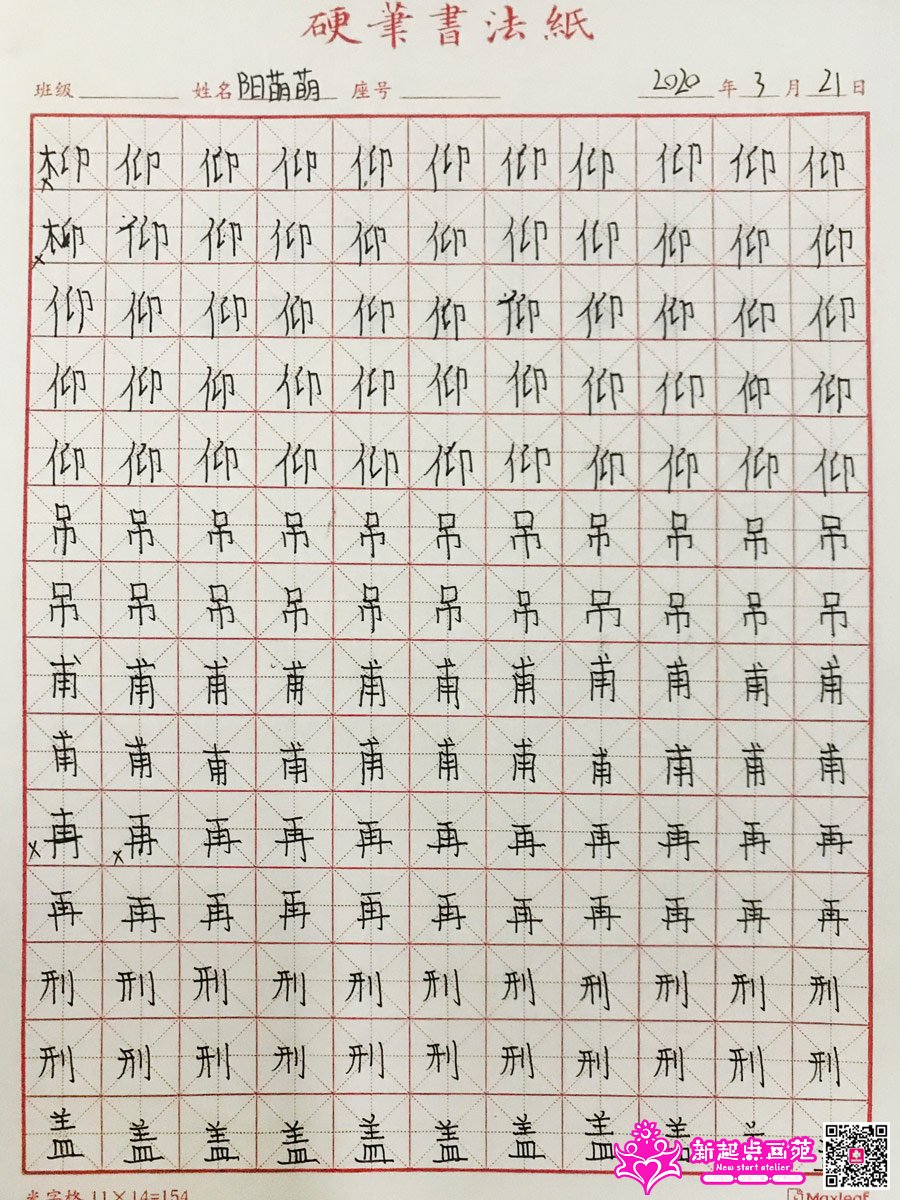 硬筆書法紙
班级 姓名 阳萌萌 座号 2020 年 3 月 21 日
柳 仰 仰 仰 仰 仰 仰 仰 仰 仰 仰
柳 仰 仰 仰 仰 仰 仰 仰 仰 仰 仰
仰 仰 仰 仰 仰 仰 仰 仰 仰 仰 仰
仰 仰 仰 仰 仰 仰 仰 仰 仰 仰 仰
仰 仰 仰 仰 仰 仰 仰 仰 仰 仰 仰
吊 吊 吊 吊 吊 吊 吊 吊 吊 吊 吊
吊 吊 吊 吊 吊 吊 吊 吊 吊 吊 吊
甫 甫 甫 甫 甫 甫 甫 甫 甫 甫 甫
甫 甫 甫 甫 甫 甫 甫 甫 甫 甫 甫
再 再 再 再 再 再 再 再 再 再
再 再 再 再 再 再 再 再 再 再 再
刑 刑 刑 刑 刑 刑 刑 刑 刑 刑 刑
刑 刑 刑 刑 刑 刑 刑 刑 刑 刑 刑
盖 盖 盖 盖 盖 盖 盖 盖 盖
新起点画苑
New start atelier
米字格 11×14=154 Maxleaf